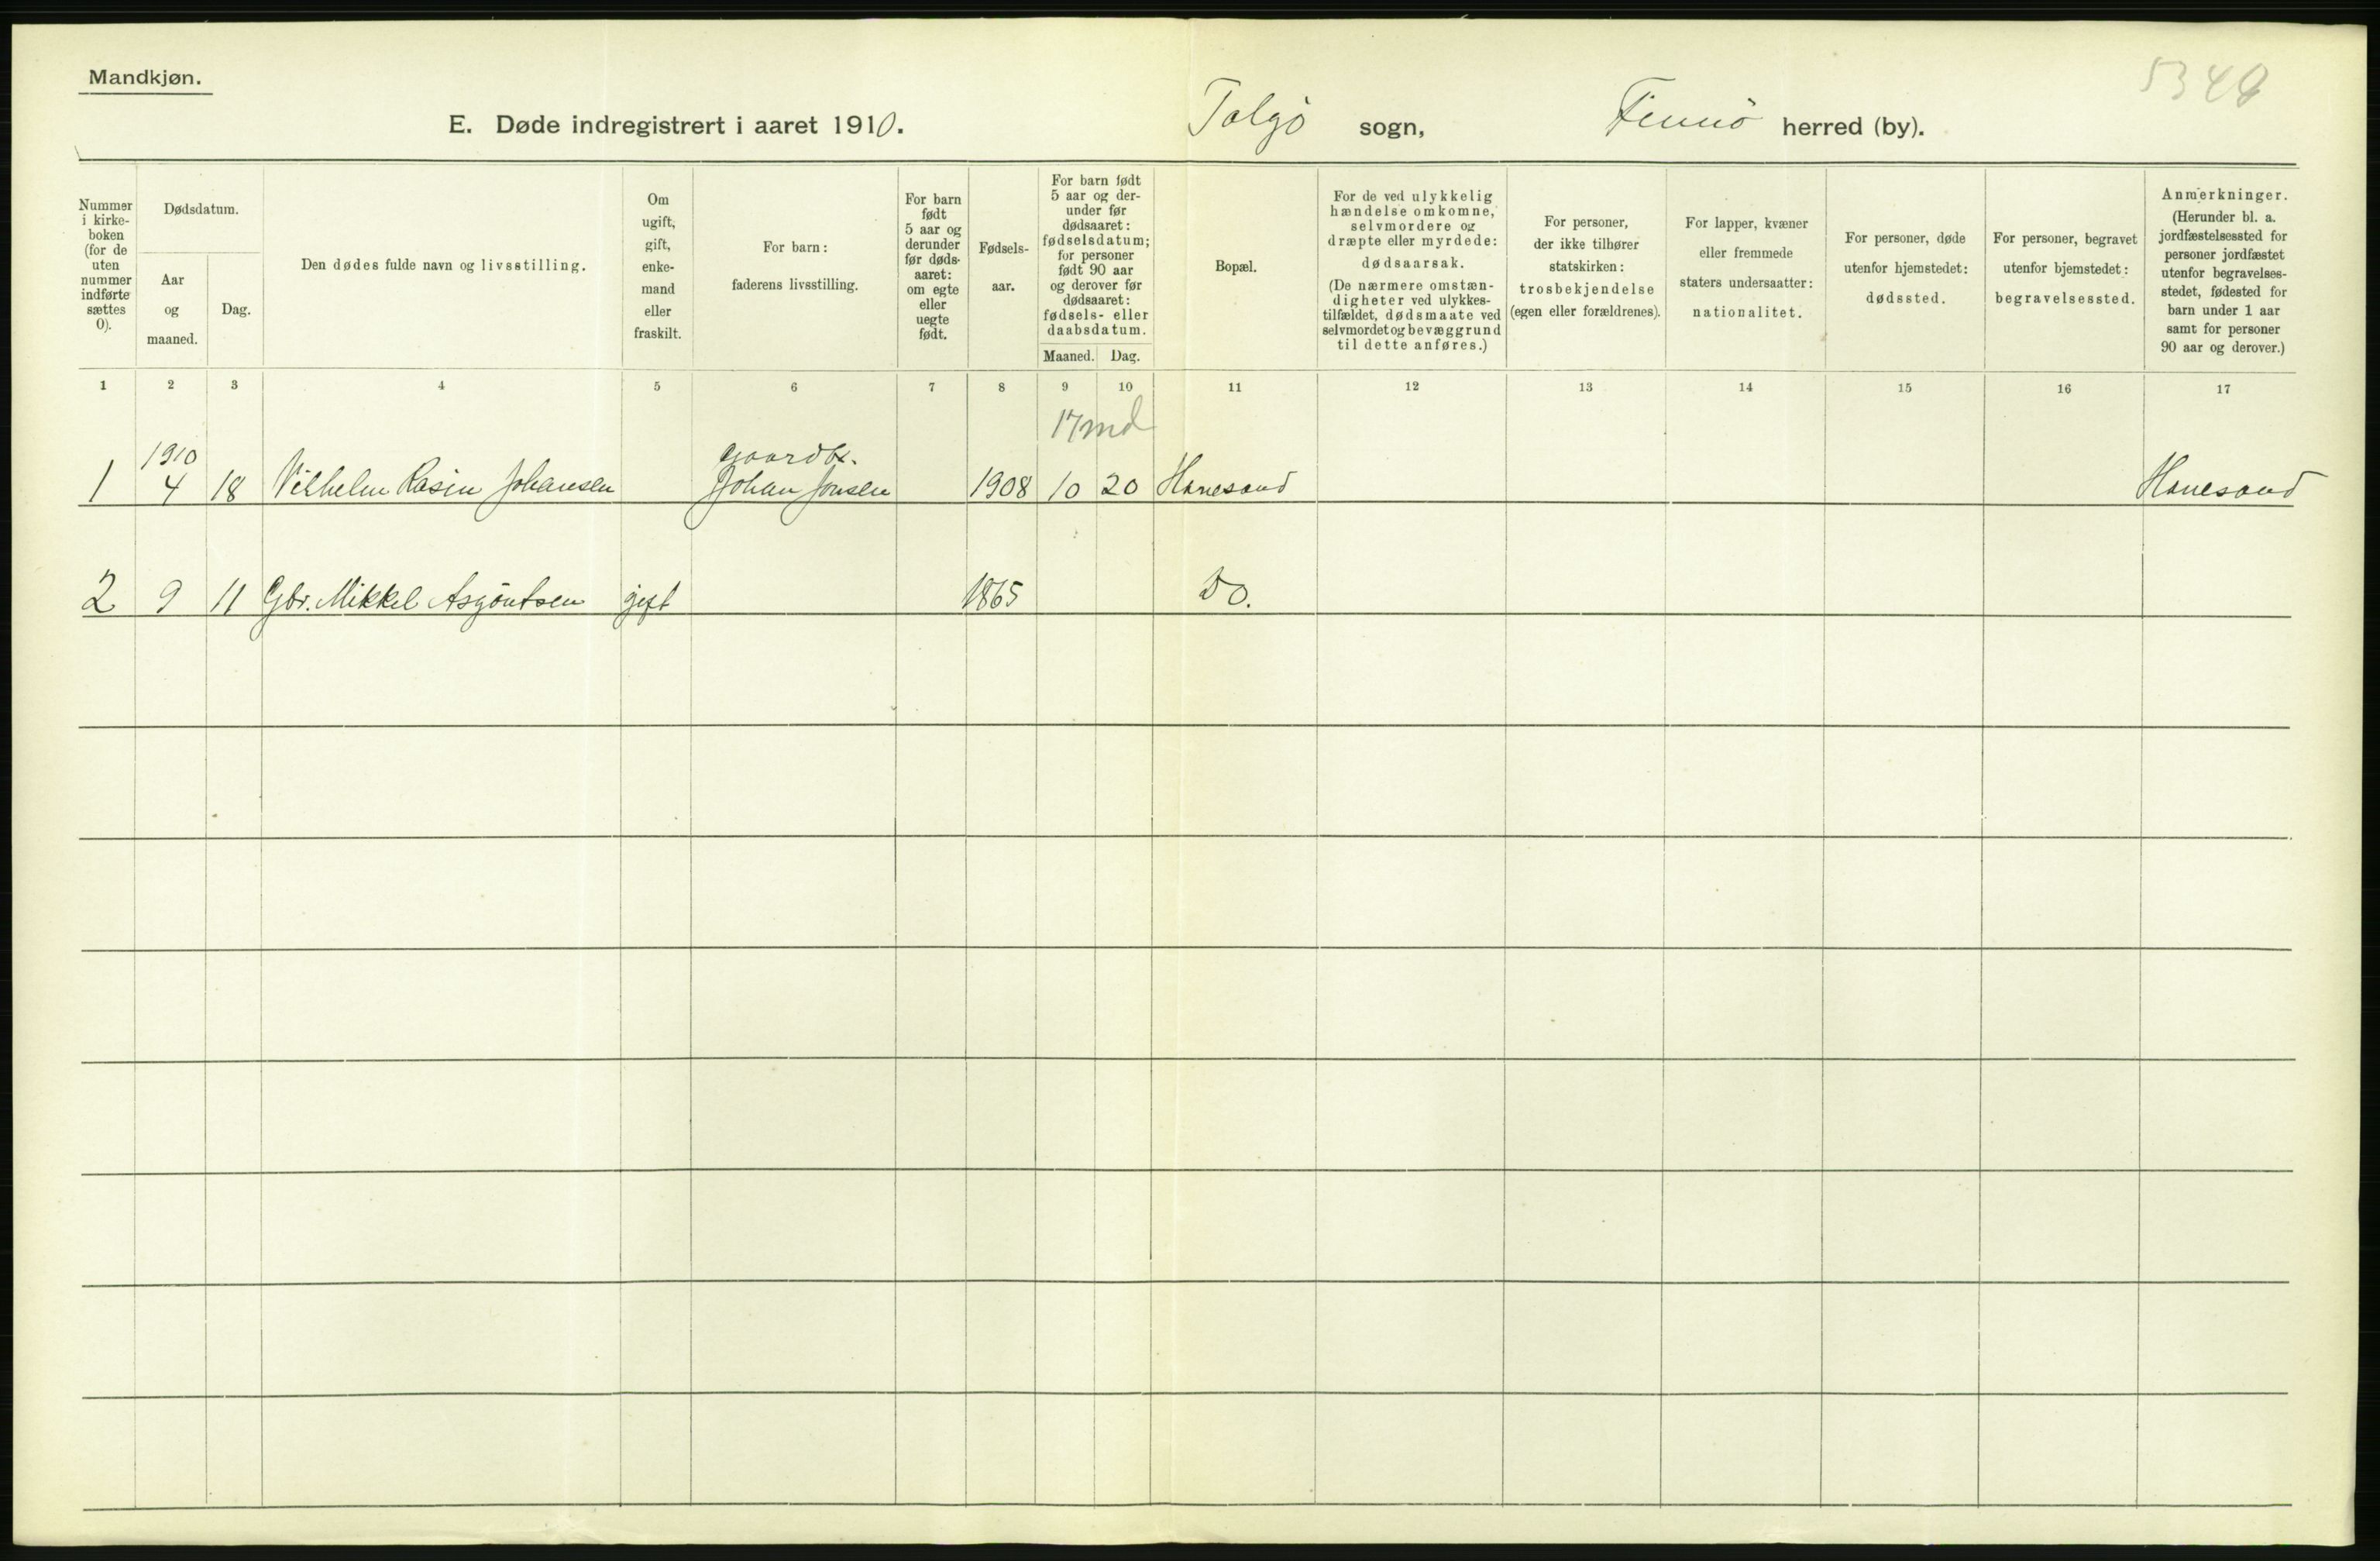 Mandkjøn.
5348
E. Døde indregistrert i aaret 1910. Talgø sogn, Finnø herred (by).
Nummer
i kirke-
boken
(for de
uten
nummer
indførte
sættes
0).
Dødsdatum.
Aar
og
maaned.
Dag.
Den dødes fulde navn og livsstilling.
Om
ugift,
gift,
enke-
mand
eller
fraskilt.
For barn:
faderens livsstilling.
For barn
født
5 aar og
derunder
før døds-
aaret:
om egte
eller
uegte
født.
Fødsels-
aar.
For barn født
5 aar og der-
under før
dødsaaret:
fødselsdatum;
for personer
født 90 aar
og derover før
dødsaaret:
fødsels- eller
daabsdatum.
Maaned. Dag.
Bopæl.
For de ved ulykkelig
hændelse omkomne,
selvmordere og
dræpte eller myrdede:
dødsaarsak.
(De nærmere omstæn-
digheter ved ulykkes-
tilfældet, dødsmaate ved
selvmordet og bevæggrund
til dette anføres.)
For personer,
der ikke tilhører
statskirken:
trosbekjendelse
(egen eller forældrenes).
For lapper, kvæner
eller fremmede
staters undersaatter:
nationalitet.
For personer, døde
utenfor hjemstedet:
dødssted.
For personer, begravet
utenfor hjemstedet:
begravelsessted.
Anmerkninger.
(Herunder bl. a.
jordfæstelsessted for
personer jordfæstet
utenfor begravelses-
stedet, fødested for
barn under 1 aar
samt for personer
90 aar og derover.)
1 2 3 4 5 6 7 8 9 10 11 12 13 14 15 16 17
17 md
1910 gaardbr.
1 4 18 Vilhelm Rasin Johansen Johan Jonsen 1908 10 20 Hanesand Hanesand
2 9 11 Gbr. Mikkel Asgöutsen gift 1865 Do.